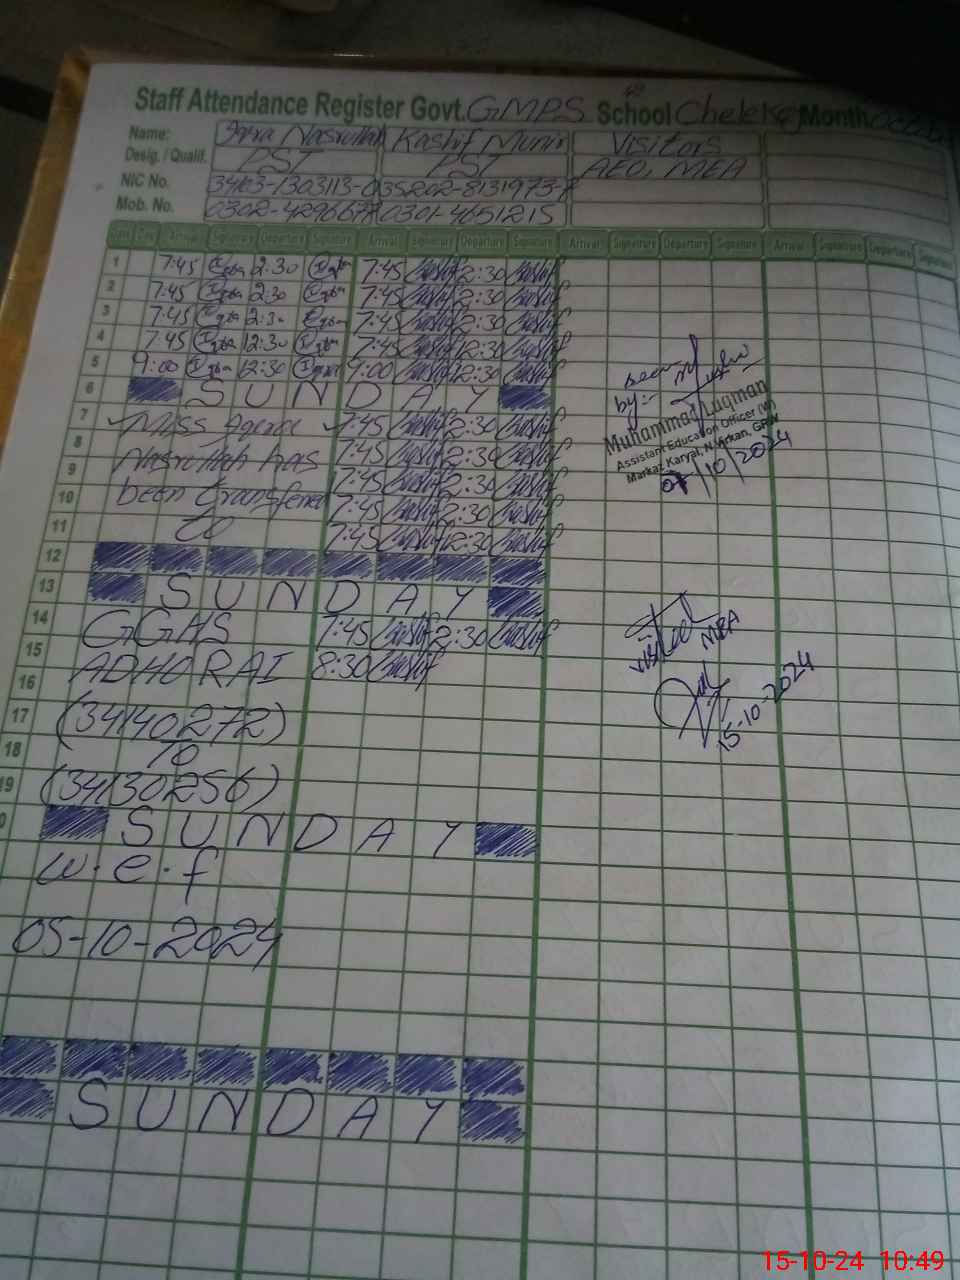 Staff Attendance Register Govt. GMPS School Cheleke Month October
Name: Iqra Nasrullah Kashif Munir Visitors
Desig. / Qualif. PST PST AEO, MEA
NIC No. 35202-8131973-
Mob. No. 0301-4651215
Date Day Arrival Signature Departure Signature Arrival Signature Departure Signature Arrival Signature Departure Signature Arrival Signature Departure Signature
1 7:45 Iqra 12:30 Iqra 7:45 Kashif 12:30 Kashif
2 7:45 Iqra 12:30 Iqra 7:45 Kashif 12:30 Kashif
3 7:45 Iqra 12:30 Iqra 7:45 Kashif 12:30 Kashif
4 7:45 Iqra 12:30 Iqra 7:45 Kashif 12:30 Kashif
5 9:00 Iqra 12:30 Iqra 9:00 Kashif 12:30 Kashif
6 SUNDAY
7 Miss Iqra 7:45 Kashif 12:30 Kashif
8 Nasrullah has 7:45 Kashif 12:30 Kashif
9 7:45 Kashif 12:30 Kashif
10 been transferred 7:45 Kashif 12:30 Kashif
11 to 7:45 Kashif 12:30 Kashif
12
13 SUNDAY
14 GGHS 7:45 Kashif 12:30 Kashif
15 ADHORAI 8:30 Kashif
16
17 (34140272)
18 To
19 (34130256)
SUNDAY
w.e.f
05-10-2024
SUNDAY
Seen
by:-
Muhammad Luqman
Assistant Education Officer (M)
Markaz Karyal, N.Virkan, GRW
07/10/2024
Visited MEA
15-10-2024
15-10-24 10:49